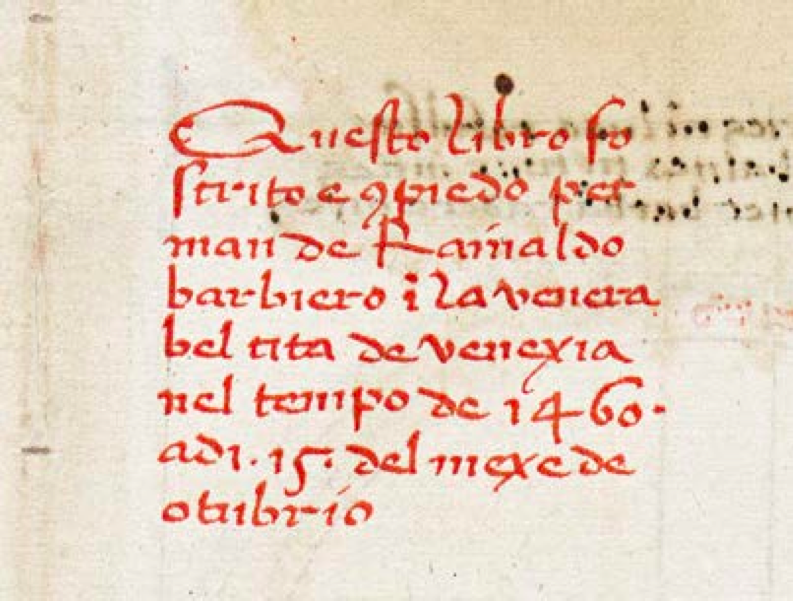 Questo libro fo
scrito e ꝯpiedo per
man de Rainaldo
barbiero ī la venera
bel cita de venexia
nel tempo de 1460·
adi·15·del mexe de
otubrio